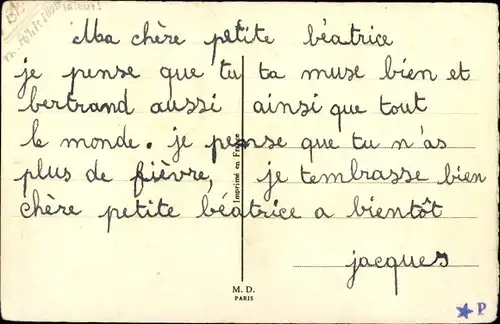 Ma chère petite béatrice
je pense que tu ta muse bien et
bertrand aussi ainsi que tout
le monde. je pense que tu n'as
plus de fièvre, je tembrasse bien
chère petite béatrice a bientôt
jacques
Imprimé en France
M. D.
PARIS
★ P